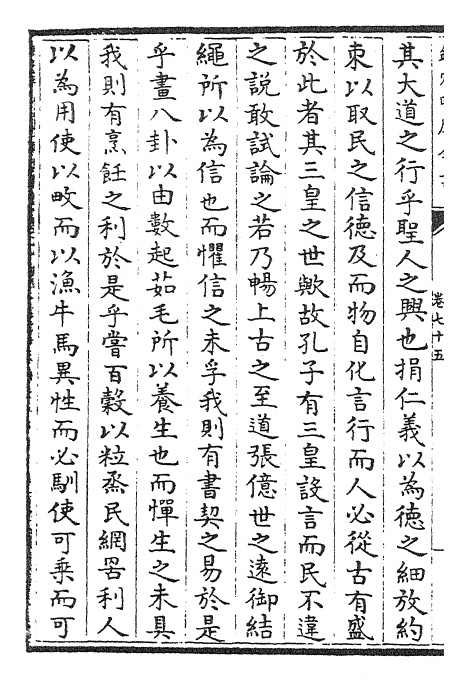 卷七十五
其大道之行乎聖人之興也捐仁義以為德之細放約
束以取民之信德及而物自化言行而人必從古有盛
於此者其三皇之世歟故孔子有三皇設言而民不違
之説敢試論之若乃暢上古之至道張億世之遠御結
繩所以為信也而懼信之未孚我則有書契之易於是
乎畫八卦以由數起茹毛所以養生也而憚生之未具
我則有烹飪之利於是乎嘗百穀以粒烝民網罟利人
以為用使以畋而以漁牛馬異性而必馴使可乗而可